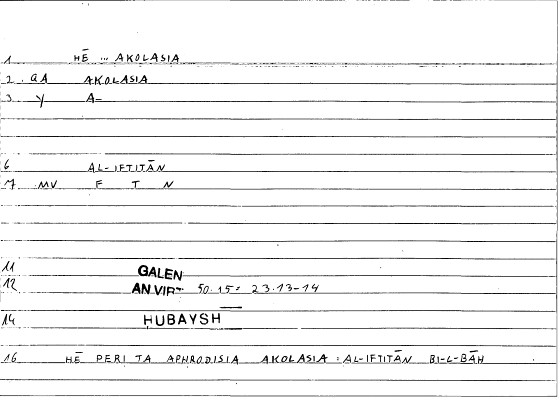 1 HĒ ... AKOLASIA
2. GA AKOLASIA
3. Y A-
6 AL-IFTITĀN
7 MV F T N
11 GALEN
12 AN VIRT 50.15= 23.13-14
14 HUBAYSH
16 HĒ PERI TA APHRODISIA AKOLASIA : AL-IFTITĀN BI-L-BĀH